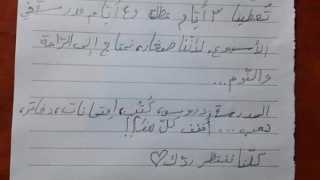 تعطينا ٣ أيام عطلة و٤ أيام مدرسة في
الأسبوع. لأننا صغار، نحتاج إلى الراحة
والنوم...
المدرسة، دروس، كُتب، امتحانات، دفاتر،
تعب... أففف كلّ هذا!!
كلّنا ننتظر ردّك ♡